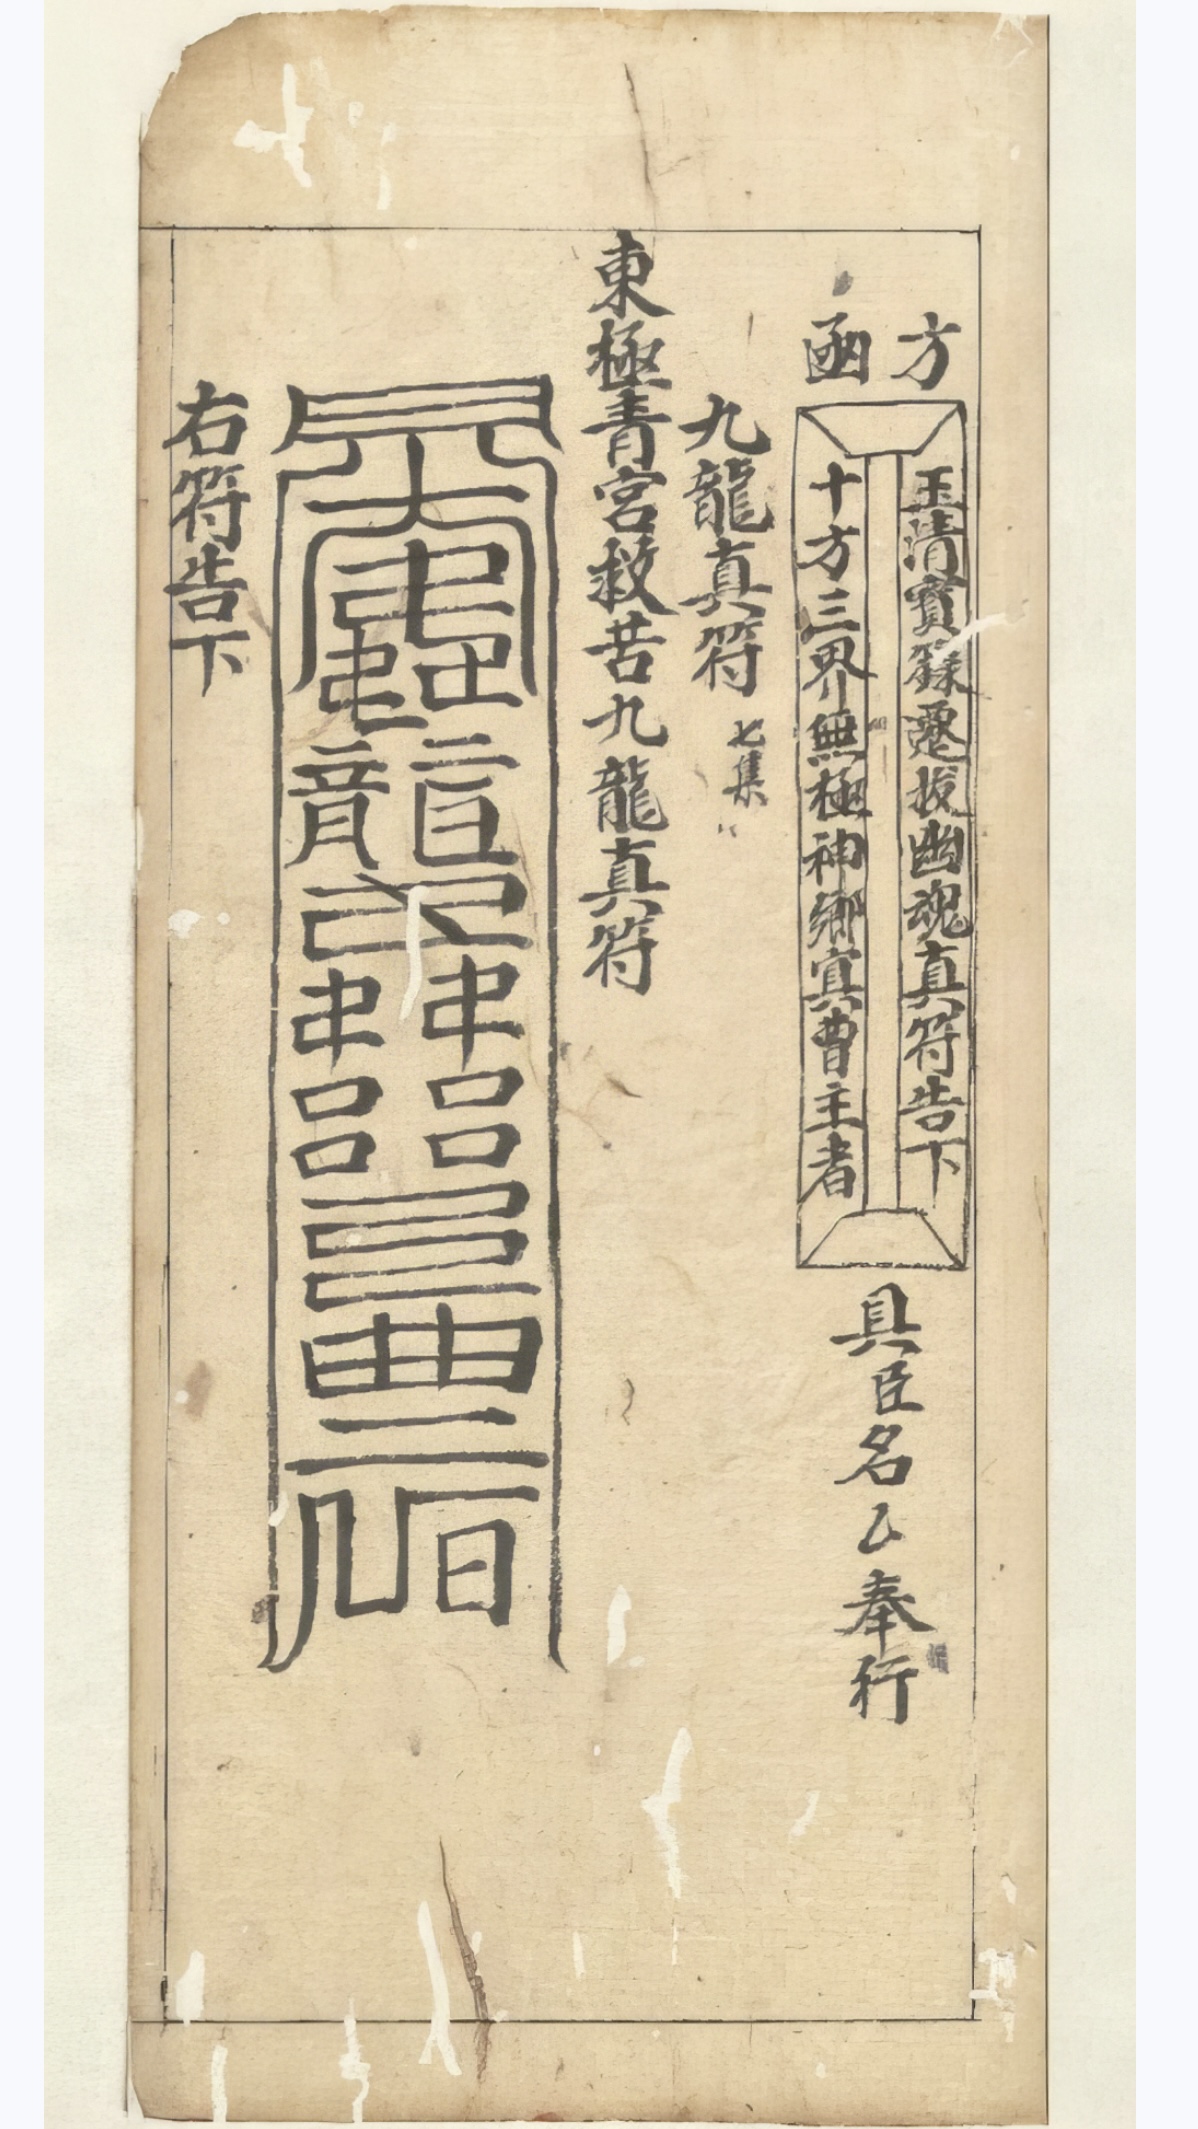 方函
玉清寳籙遷拔幽魂真符告下
十方三界無極神鄉寘曹主者
具臣名乙奉行
九龍真符 七集
東極青宮救苦九龍真符
右符告下